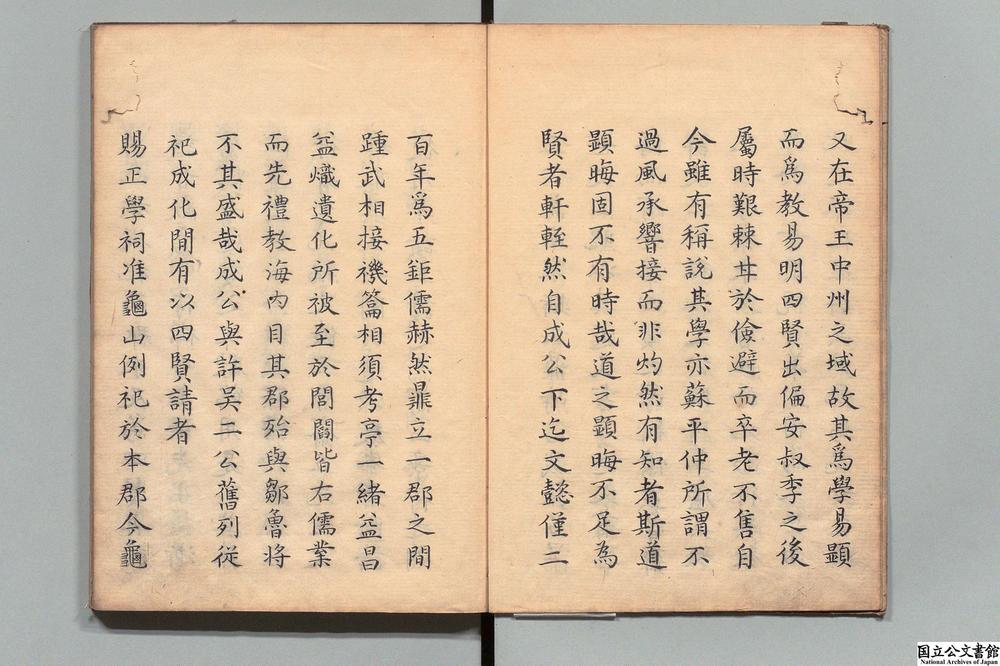 又在帝王中州之域故其爲學易顯
而爲教易明四賢出偏安叔季之後
屬時艱棘㐀於儉避而卒老不售自
今雖有稱說其學亦蘇平仲所謂不
過風承響接而非灼然有知者斯道
顕晦固不有時哉道之顕晦不足為
賢者軒輊然自成公下迄文懿僅二
百年爲五鉅儒赫然鼎立一郡之間
踵武相接禨籥相須考亭一緒益昌
益熾遺化所被至於閭閻皆右儒業
而先禮教海内目其郡殆與鄒魯將
不其盛哉成公與許吳二公舊列從
祀成化間有以四賢請者
賜正學祠准龜山例祀於本郡今龜
国立公文書館
National Archives of Japan